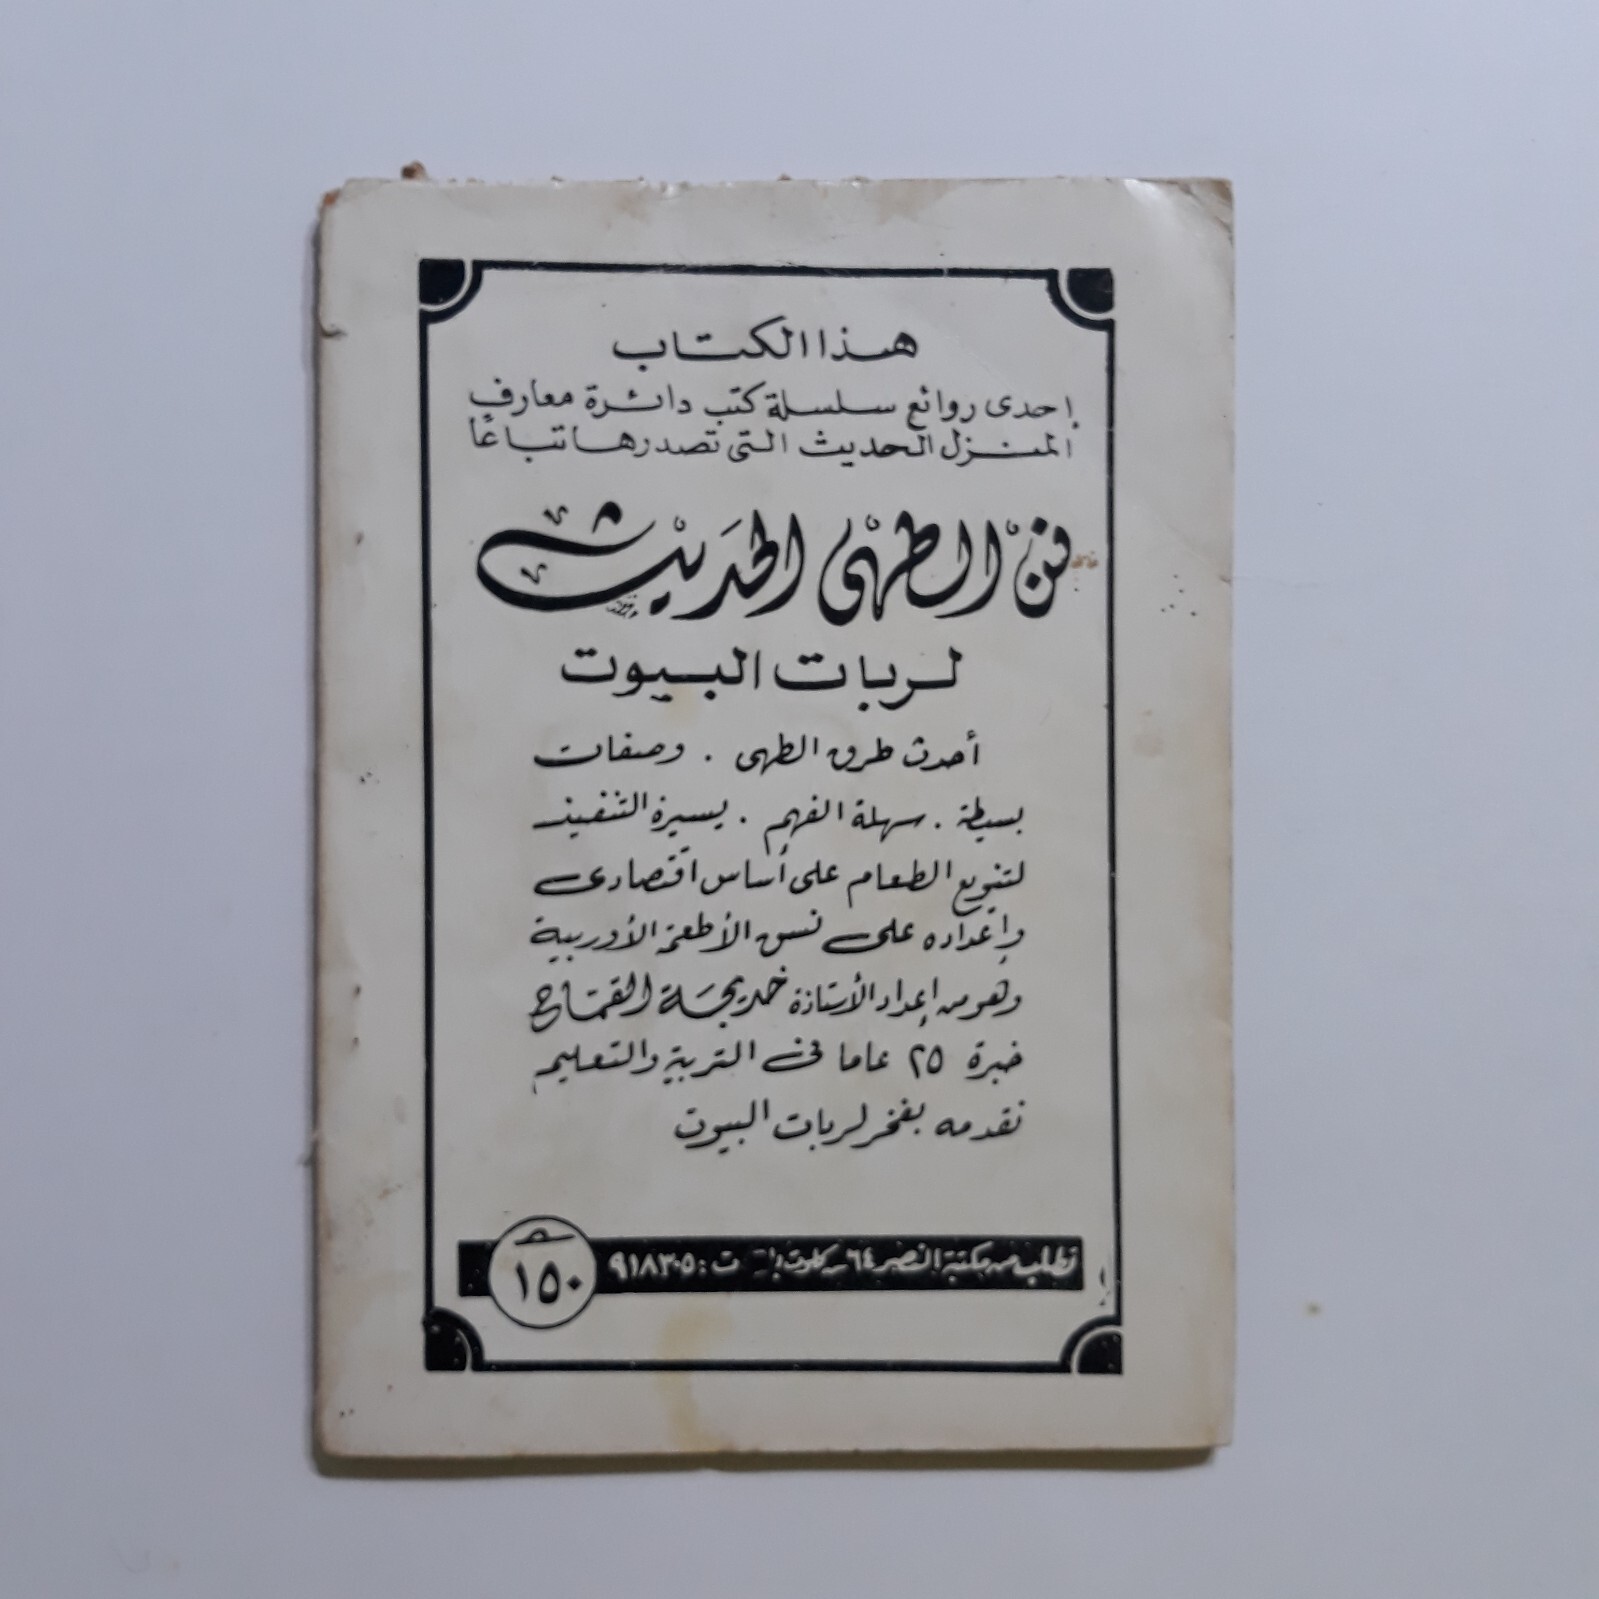 هذا الكتاب
إحدى روائع سلسلة كتب دائرة معارف
المنزل الحديث التى تصدرها تباعًا
فن الطهى الحديث
لربات البيوت
أحدث طرق الطهى . وصفات
بسيطة . سهلة الفهم . يسيرة التنفيذ
لتنويع الطعام على أساس اقتصادى
وإعداده على نسق الأطعمة الأوربية
وهو من إعداد الأستاذة خديجة القماح
خبرة ٢٥ عاما فى التربية والتعليم
نقدمه بفخر لربات البيوت
تطلب من مكتبة النصر ٦٤ ش كلوت بك ت : ٩١٨٢٠٥
١٥٠